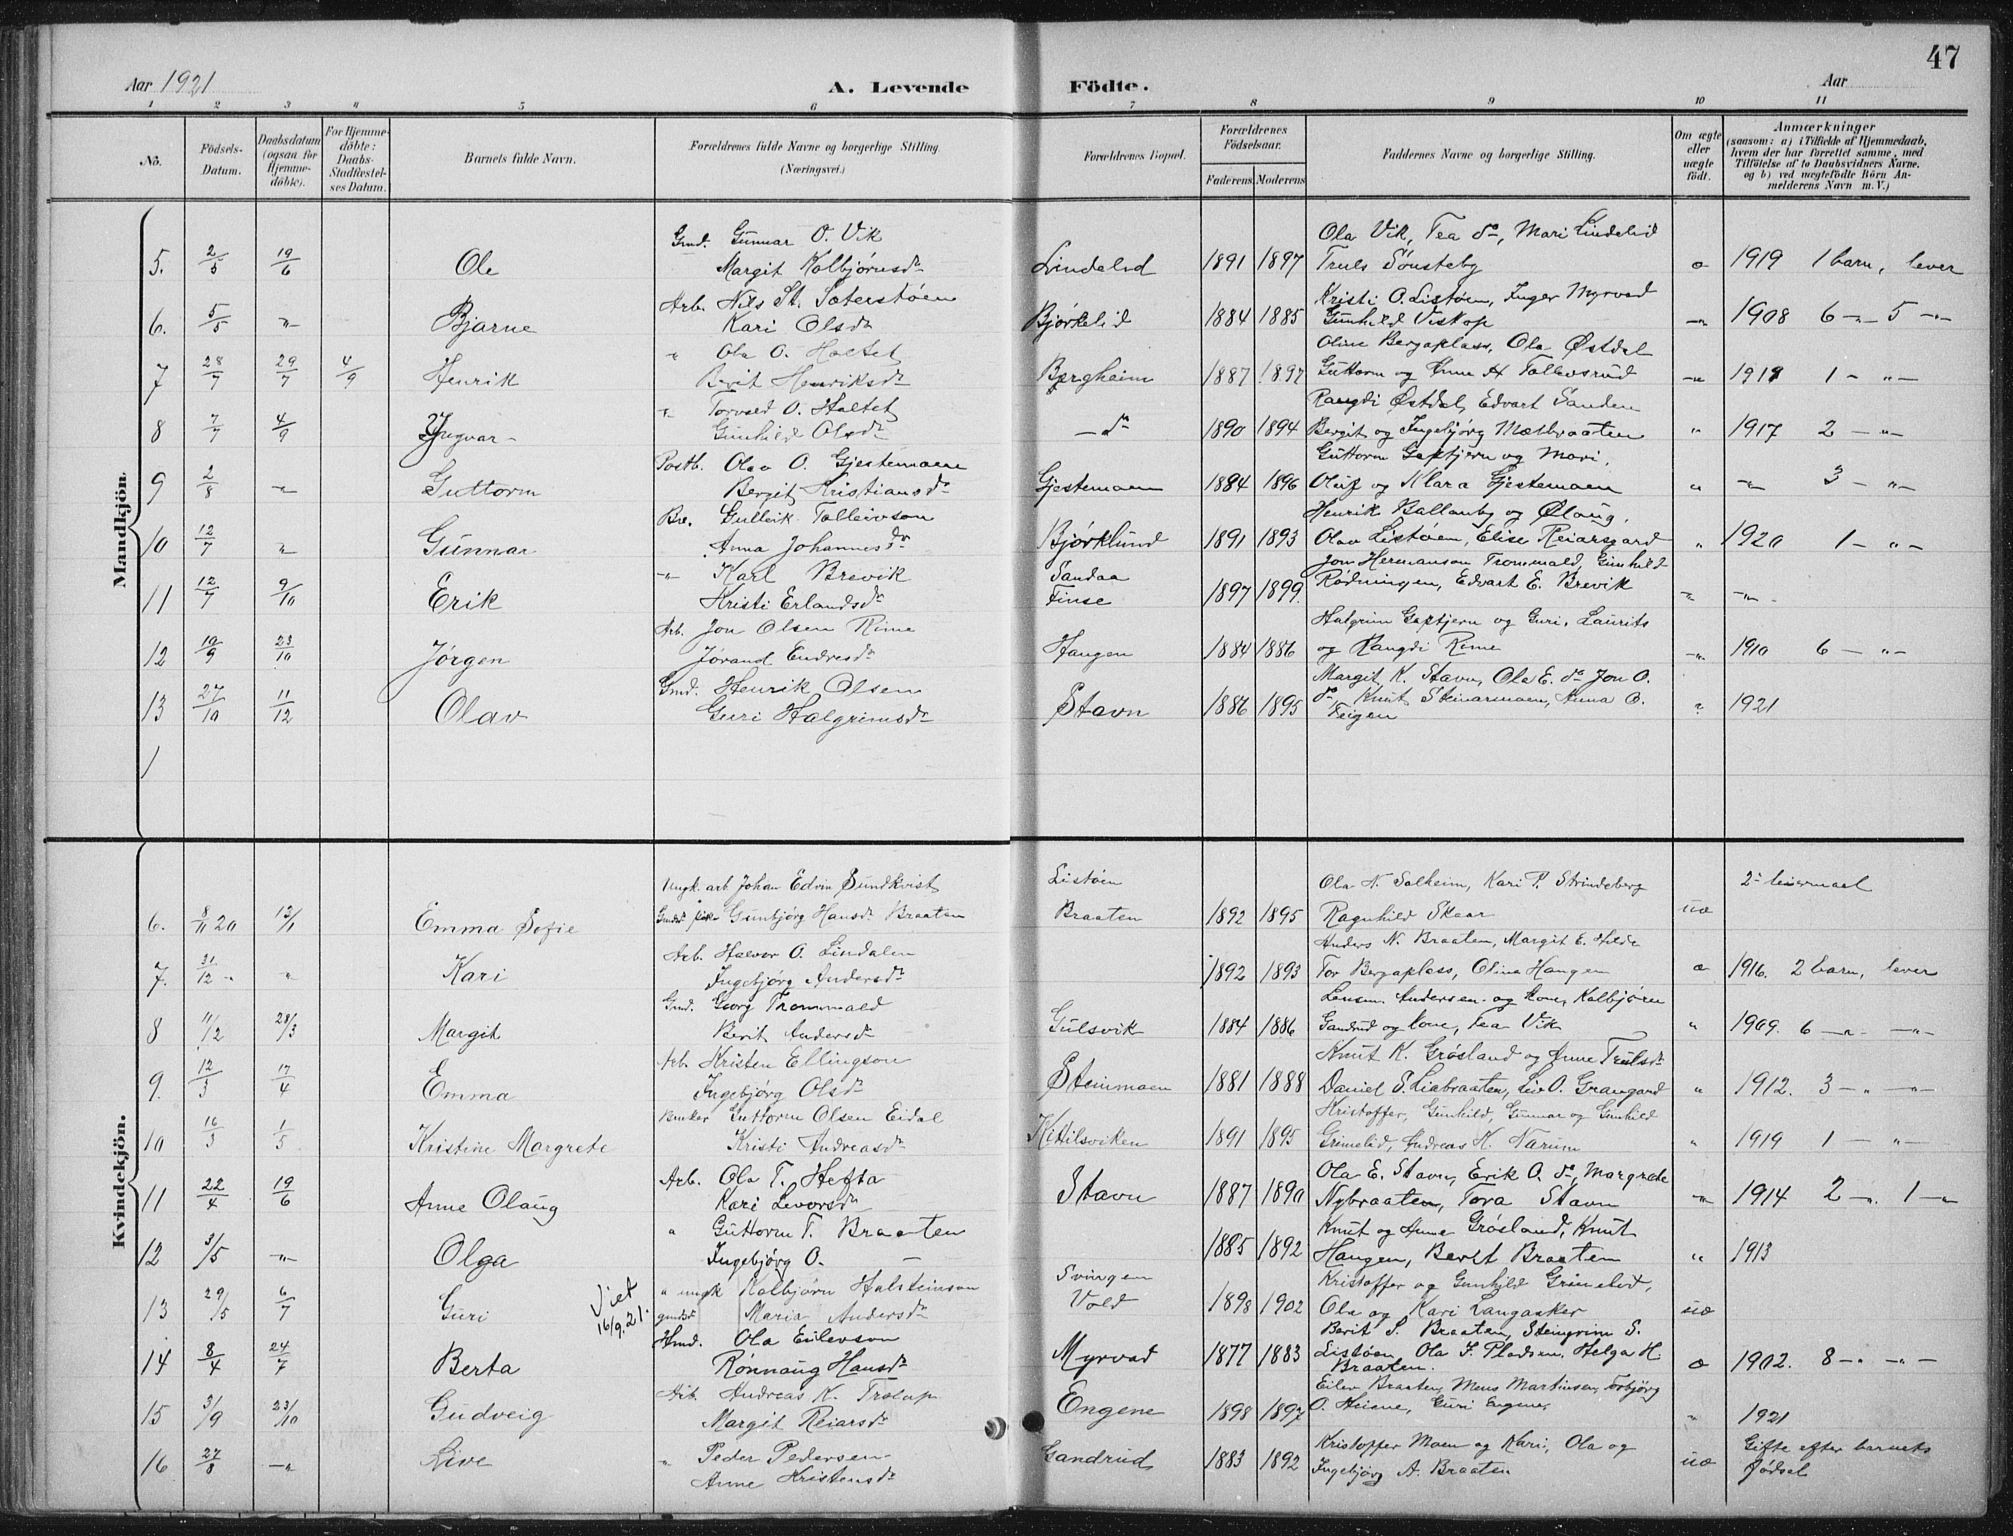 47
Aar 1921 A. Levende Födte. Aar
1 2 3 4 5 6 7 8 9 10 11
No. Födsels-Datum. Daabsdatum (ogsaa for Hjemme-döbte). For Hjemme-döbte: Daabs-Stadfæstelses Datum. Barnets fulde Navn. Forældrenes fulde Navne og borgerlige Stilling. (Næringsvei.) Forældrenes Bopæl. Forældrenes Födselsaar. Faderens. Moderens. Faddernes Navne og borgerlige Stilling. Om ægte eller uægte födt. Anmærkninger (saasom: a) i Tilfælde af Hjemmedaab, hvem der har forrettet samme, med Tilföielse af to Daabsvidners Navne, og b) ved uægtefödte Börn Anmelderens Navn m. V.)
Mandkjön.
Gmd. Gunnar O. Vik Ola Vik, Tea do, Mari Lindelid
5. 2/5 19/6 Ole Margit Kolbjørnsdr Lindelid 1891 1897 Truls Sønsteby æ 1919 1 barn, lever
Arb. Nils St. Sæterstøen Kristi O. Listøen, Inger Myrvad
6. 5/5 -"- Bjarne Kari Olsdr Bjørkelid 1884 1885 Gunhild Viskop -"- 1908 6 -"- 5 -"-
" Ola O. Haltet Oline Bergaplass, Ola Østdal
7 28/7 29/7 4/9 Henrik Berit Henriksdr Bergheim 1887 1897 Guttorm og Anne H Tollevsrud -"- 1919 1 - "-
" Torvald O. Haltet Rangdi Østdal, Edvart Sanden
8 7/7 4/9 Yngvar Gunhild Olsdr - do 1890 1894 Bergit og Ingebjørg Mælbraaten " 1917 2 - "-
Postb. Olav O. Gjestemoen Guttorm Gaptjern og Mari,
9 2/8 -"- Guttorm Bergit Kristiansdr Gjestemoen 1884 1896 Oluf og Klara Gjestemoen " -"- 3 - "-
Bre. Gulleik Tolleivson Henrik Ballanby og Ølaug,
10 12/7 " Gunnar Anna Johannesdr Bjørklund 1891 1893 Olav Listøen, Elise Reiarsgard " 1920 1 - "-
-"- Karl Brevik Sandaa Jon Hermanson Trommald, Gunhild
11 12/7 9/10 Erik Kristi Erlandsdr Finse 1897 1899 Rødningen, Edvart E. Brevik -"- -"-
Arb. Jon Olsen Rime Halgrim Gaptjern og Guri, Laurits
12 19/9 23/10 Jørgen Jørand Endresdr Haugen 1884 1886 og Rangdi Rime -"- 1910 6 - "-
Gmd. Henrik Olsen Margit K. Stavn, Ola E. do Jon O.
13 27/10 11/12 Olav Guri Halgrimsdr Stavn 1886 1895 do Knut Steinarmoen, Anna O. Feigen " 1921
1
Kvindekjön.
Ungk. arb Johan Edvin Sundkvist Listøen Ola N. Solheim, Kari P. Strindeberg 2. leiermaal
6. 8/11 20 13/1 Emma Sofie Gmdsdr pike Gunbjørg Hansdr Braaten Braaten 1892 1895 Ragnhild Skaar uæ
Arb. Halvor O. Lindalen Anders N. Braaten, Margit E. Hilde
7. 31/12 - " Kari Ingebjørg Andersdr 1892 1893 Tor Bergaplass, Olina Haugen æ 1916. 2 barn, lever
Gmd. Georg Trommald Lensm. Andersen og kone, Kolbjørn
8 11/2 28/3 Margit Berit Andersdr Gulsvik 1884 1886 Gandrud og kone, Tea Vik " 1909. 6 -"- -"-
Arb. Kristen Ellingson Knut K. Grøsland og Anne Trulsdr
9. 12/3 17/4 Emma Ingebjørg Olsdr Steinmoen 1881 1888 Daniel S. Liabraaten, Liv O. Grangard " 1912. 3 - " -"-
Bruker Guttorm Olsen Eidal Kristoffer, Gunhild, Gunnar og Gunhild
10 16/3 1/5 Kristine Margrete Kristi Andreasdr Kittilsviken 1891 1895 Grimelid, Andreas K. Narum " 1919 1 - "-
Arb. Ola T. Hefta Ola E. Stavn, Erik O. do, Margrete
11 22/4 19/6 Anne Olaug Kari Levorsdr Stavn 1887 1890 Nybraaten, Tora Stavn -"- 1914 2 -". 1 -"-
" Guttorm T. Braaten Knut og Anne Grøsland, Knut
12 3/5 -"- Olga Ingebjørg O. - 1885 1892 Haugen, Berit Braaten " 1913
" ungk Kolbjørn Halsteinson Svingen Kristoffer og Gunhild Grimelid,
13 29/5 6/7 Guri Viet 16/9.21. gmdsdr Maria Andersdr Vold 1898 1902 Ola og Kari Langaaker uæ
Hmd. Ola Eilevson Berit S. Braaten, Steingrim S.
14 8/4 24/7 Berta Rønnaug Hansdr Myrvad 1877 1883 Listøen Ola I. Pladsen, Helga H. Braaten. æ 1902. 8 -"- -"-
Arb. Andreas K. Træup Eilev Braaten, Mons Martinsen, Torbjørg
15 3/9 23/10 Gudveig Margit Reiarsdr Engene 1898 1897 O. Heiene, Guri Engene, " 1921
" Peder Pedersen Kristoffer Moen og Kari, Ola og Gifte efter barnets
16 27/8 -"- Live Anne Kristensdr Gandrud 1883 1892 Ingebjørg A. Braaten uæ fødsel